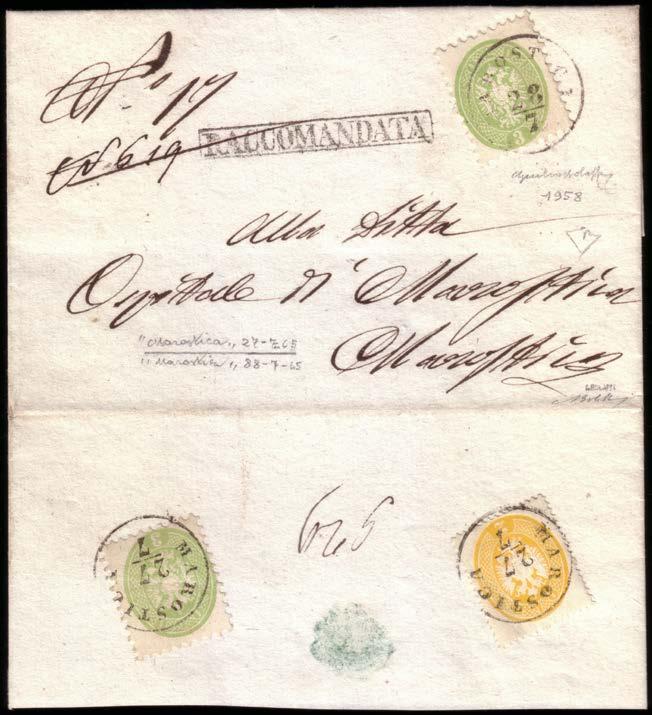 N° 17
N 619
RACCOMANDATA
MAROSTICA
28/7
3
1958
Alla Ditta
Ospitale di Marostica
Marostica
"Marostica" 27-7-65
"Marostica" 88-7-65
626
MAROSTICA
27/7
3
MAROSTICA
27/7
2